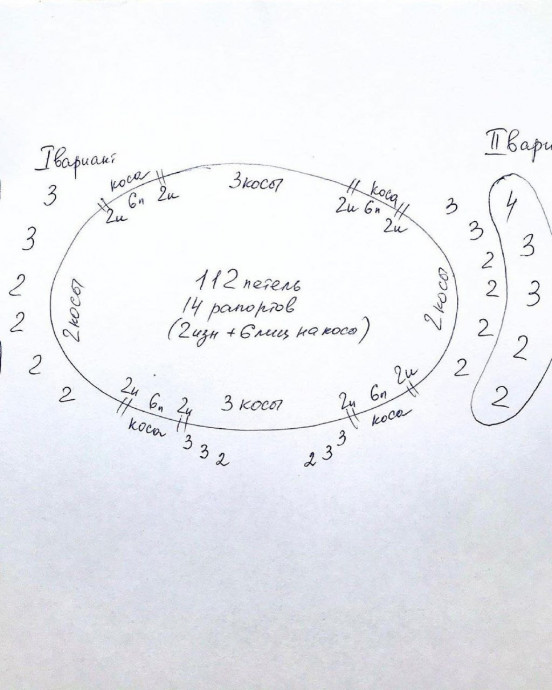 I вариант
II вари
коса
2и 6л 2и
3 косы
коса
2и 6л 2и
3
3
2
2
2
2
2 косы
112 петель
14 рапортов
(2изн + 6лиц на косо)
2 косы
3
3
2
2
2
2
4
3
3
2
2
2и 6л 2и
коса
3 косы
2и 6л 2и
коса
3 3 2
2 3 3